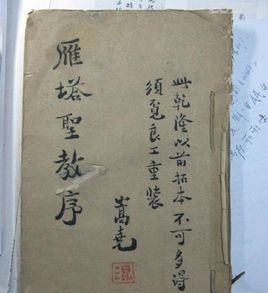 此乾隆以前拓本不可多得
須覓良工重裝
嵩堯
雁塔聖教序